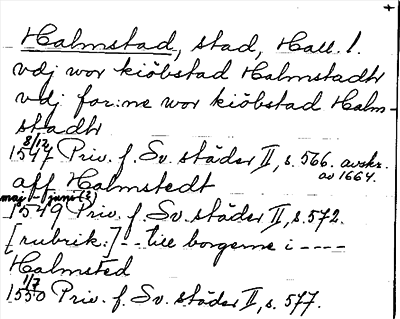 +
Halmstad, stad, Hall. l.
vdj wor kiöbstad Halmstadtr
vdj for:ne wor kiöbstad Halm-
stadtr
1547 8/12 Priv. f. Sv. städer II, s. 566. avskr.
av 1664.
aff Halmstedt
maj - juni (?)
1549 Priv. f. Sv. städer II, s. 572.
[rubrik:] - - till borgerne i - - - -
Halmsted
1550 1/7 Priv. f. Sv. städer II, s. 577.